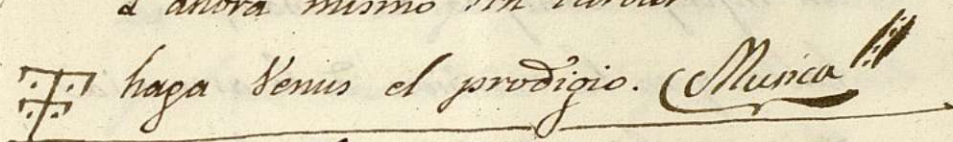 a ahora mismo sin tardar
haga Venus el prodigio. Musica